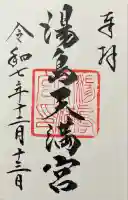 奉拝
湯島天満宮
令和七年十二月十三日